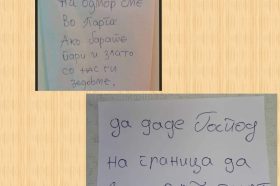 на одмор сме
Во Парга
Ако барате
пари и злато
со нас ги
зедовме.
да даде Господ
на граница да